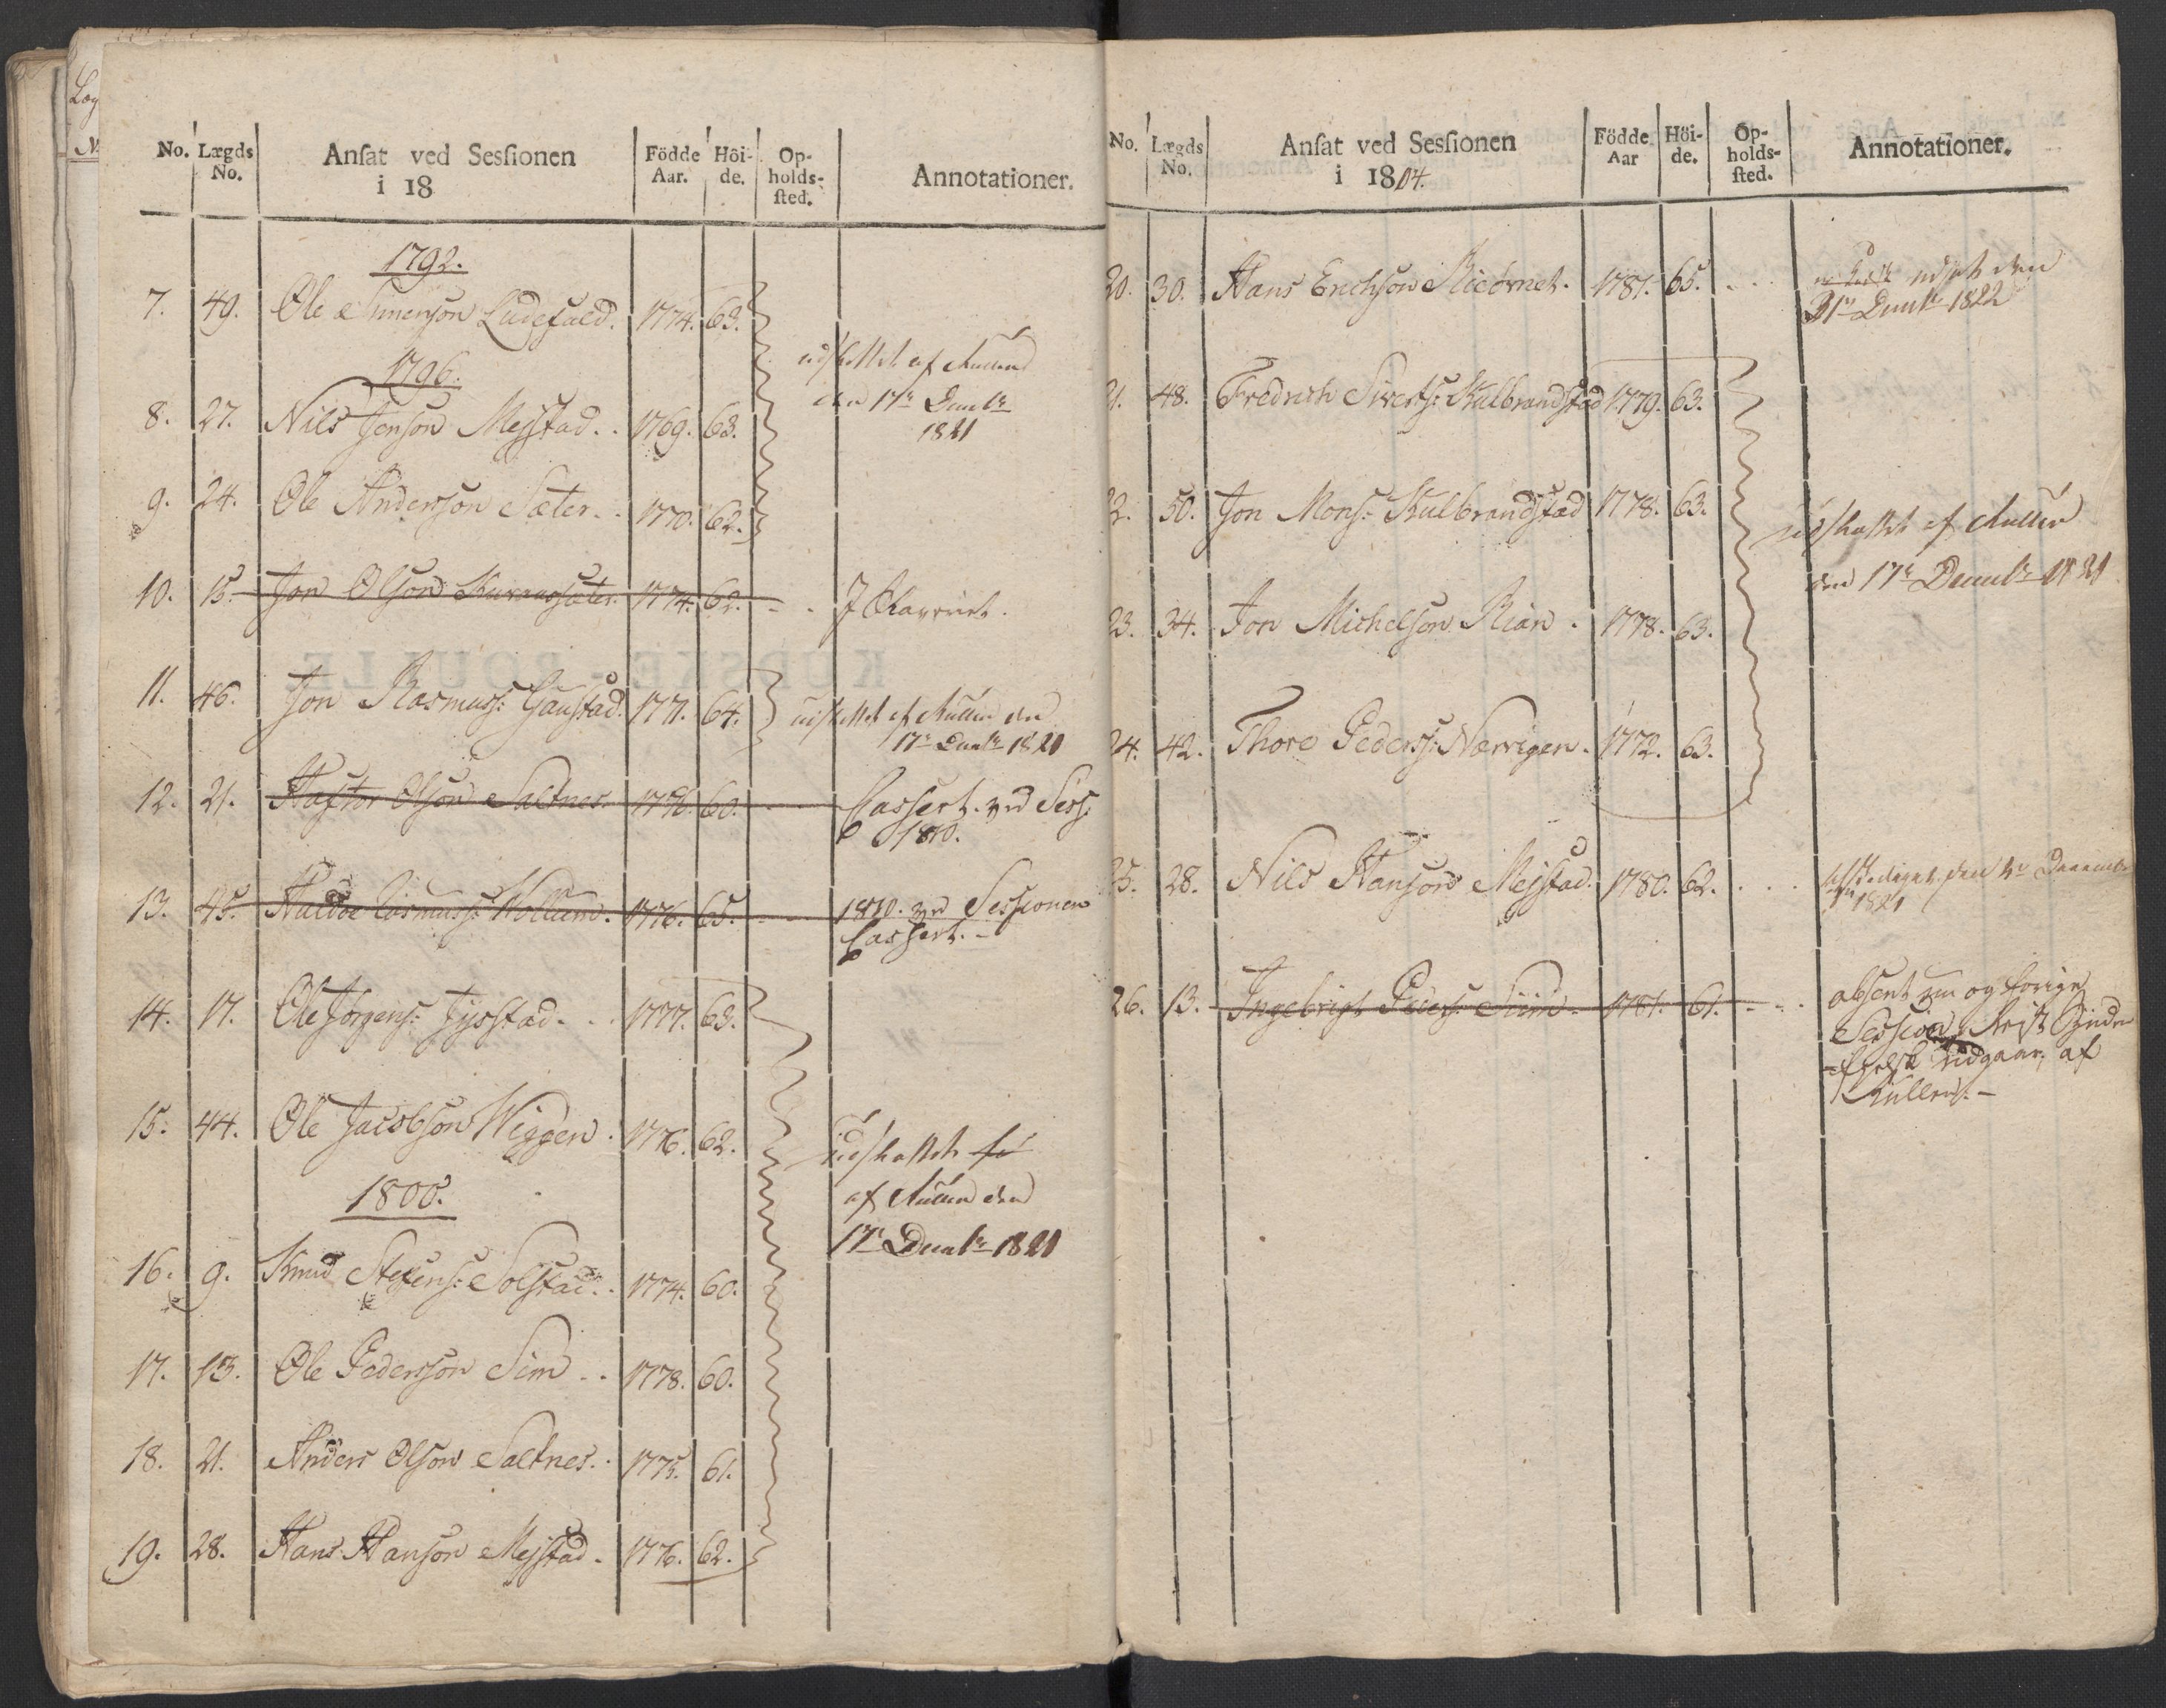 No. Lægds No. Ansat ved Sessionen i 18 Födde Aar. Höi-de. Op-holds-sted. Annotationer.
1792.
7. 49. Ole Simenson 1774. 63.
1796.
udslettet af Rullen
den 17de Decembr
1821
8. 27. Nils Jenson Mejstad. . 1769. 63.
9. 24. Ole Anderson Sæter. . 1770. 62.
10. 15. Jon Olson 1774. 62. - .
11. 46. Jon Rasmuss: Gaustad. 1771. 64. udslettet af Rullen den
17de Decbr 1821
12. 21. Haftor Olson Saltnes. 1776. 60. Cassert. ved Sess:
1810.
13. 45. Rasmuss: Wollum. 1776. 65. 1810. ved Sessionen
Cassert. -
14. 17. Ole Jörgens: Tysstad. . . 1777. 63.
15. 44. Ole Jacobson Wiggen. 1776. 62. udslettet
af Rullen den
17de Decembr 1821
1800.
16. 9. Knud Stefens: Solstad. . 1774. 60.
17. 13. Ole Pederson Sim . . 1778. 60.
18. 21. Anders Olson Saltnes. . 1775. 61.
19. 28. Hans Hanson Mejstad. 1776. 62.
No. Lægds No. Ansat ved Sessionen i 1804. Födde Aar Höi-de. Op-holds-sted. Annotationer.
20. 30. Hans Erichson 1781. 65. . . . udslet den
31te Decembr 1822
21. 48. Fredrich Siverts: Kulbrandstad 1779. 63.
22. 50. Jon Mons: Kulbrandstad 1778. 63.
udslettet af Rullen
den 17de Decembr 1821
23. 34. Jon Michelson Rian . 1778. 63.
24. 42. Thore Peders: Nerrigen. 1772. 63.
25. 28. Nils Hanson Mejstad. 1780. 62. . . . den Decembr
1821
26. 13. Ingebrigt Peders: Sim. 1781. 61. - - . absent nu og forige
Session
udgaar af
Rullen. -